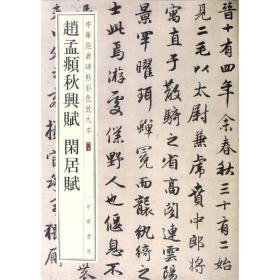 中華經典碑帖彩色放大本
趙孟頫秋興賦 閑居賦
中華書局
晉十有四年余春秋三十有二
見二毛以太尉兼虎賁中郎將
寓直于散騎之省高閣連雲陽
景罕曜珥蟬冕而襲紈綺之
士此焉游處僕野人也偃息不